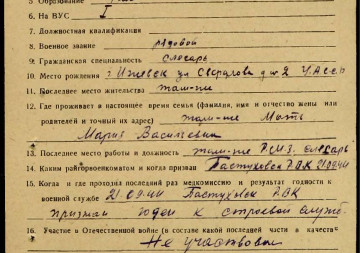 5 Образование
6 На ВУС I
7. Должностная квалификация
8 Военное звание рядовой
9. Гражданская специальность слесарь
10. Место рождения г Ижевск ул Свердлова д № 2 У.А.С.С.Р
11. Последнее место жительства там-же
12. Где проживает в настоящее время семья (фамилия, имя и отчество жены или
родителей и точный их адрес) там-же Мать
Мария Васильевна
13. Последнее место работы и должность там-же слесарь
14. Каким райгорвоенкоматом и когда призван Пастуховск Р.В.К 21.09.44
15. Когда и где проходил последний раз медкомиссию и результат годности к
военной службе 21.09.44 Пастуховск РВК
признан годен к строевой службе
16. Участие в Отечественной войне (в составе какой последней части в качестве
Не участвовал